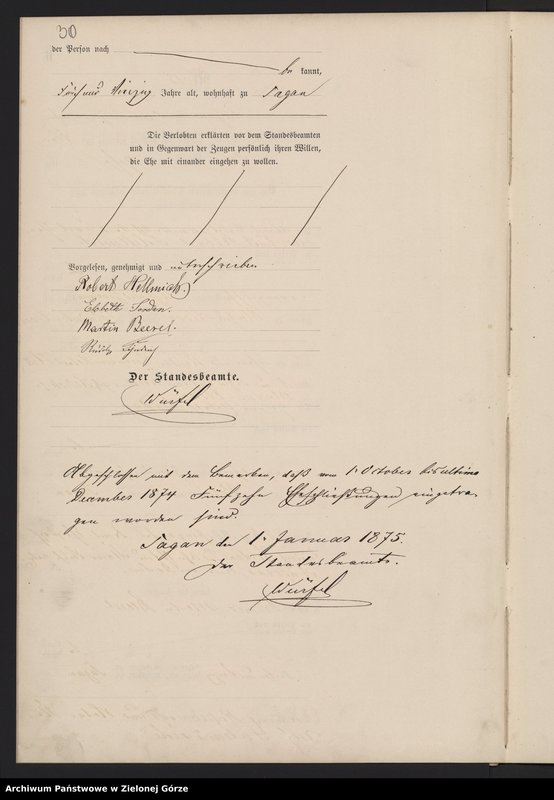 30
der Person nach
be kannt,
Jahre alt, wohnhaft zu Sagan
Die Verlobten erklärten vor dem Standesbeamten
und in Gegenwart der Zeugen persönlich ihren Willen,
die Ehe mit einander eingehen zu wollen.
Vorgelesen, genehmigt und unterschrieben
Robert Hellmich.
Elsbeth
Martin
Der Standesbeamte.
Würfel
Abgeschlossen mit dem Bemerken, daß vom 1. October bis ultimo
December 1874 Fünfzehn Eheschließungen eingetra-
gen worden sind.
Sagan den 1. Januar 1875.
Der Standesbeamte.
Würfel
Archiwum Państwowe w Zielonej Górze